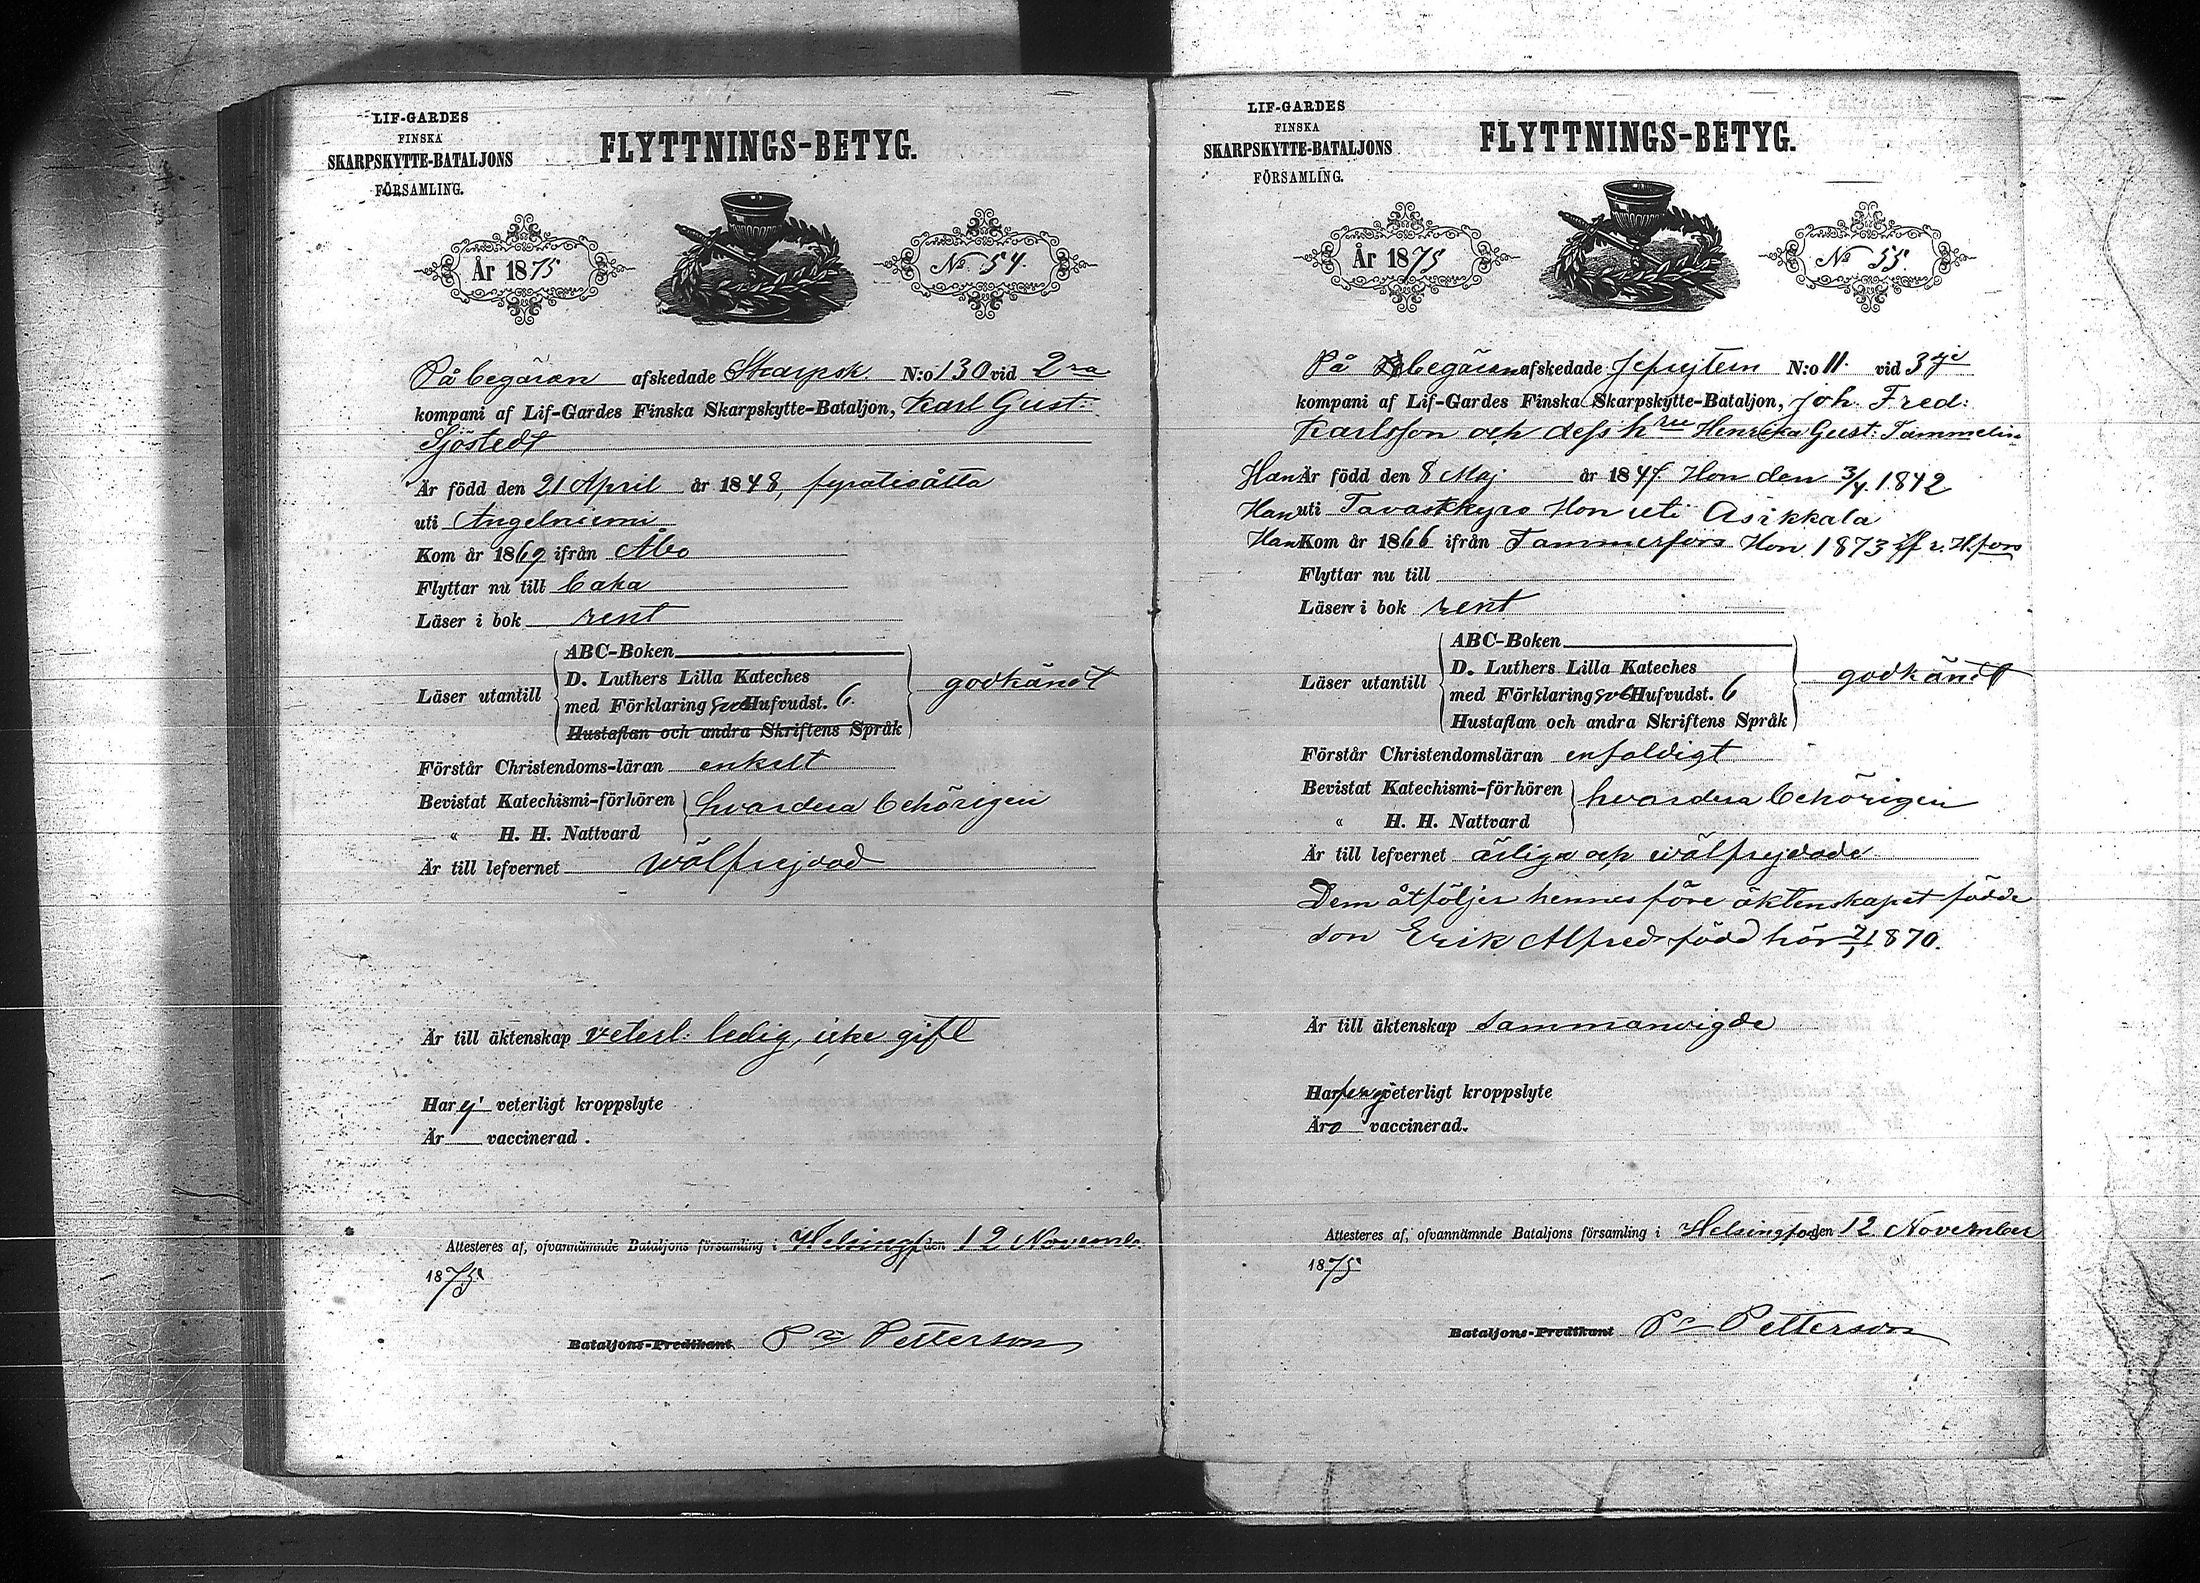 LIF-GARDES
FINSKA
SKARPSKYTTE-BATALJONS
FÖRSAMLING.
FLYTTNINGS-BETYG.
År 1875
No. 54.
På begäran afskedade Skarpsk. N:o 130 vid 2ra
kompani af Lif-Gardes Finska Skarpskytte-Bataljon, Karl Gust:
Sjöstedt
Är född den 21 April år 1848, fyratioåtta
uti Angelniemi
Kom år 1869 ifrån Åbo
Flyttar nu till
Läser i bok rent
ABC-Boken
Läser utantill D. Luthers Lilla Kateches
med Förklaring Hufvudst. 6. godkänet
Hustaflan och andra Skriftens Språk
Förstår Christendoms-läran enkelt
Bevistat Katechismi-förhören hvardera behörigen
— " H. H. Nattvard
Är till lefvernet wälfrejdad
Är till äktenskap veterl: ledig, icke gift
Har ej veterligt kroppslyte
Är vaccinerad.
Attesteres af, ofvannämnde Bataljons församling i Helsingf den 12 Novemb.
1875.
Bataljons-Predikant Petterson
LIF-GARDES
FINSKA
SKARPSKYTTE-BATALJONS
FÖRSAMLING.
FLYTTNINGS-BETYG.
År 1875
No 55.
På begäran afskedade Jefrejtern N:o 11. vid 3dje
kompani af Lif-Gardes Finska Skarpskytte-Bataljon, Joh. Fred:
Karlsson och dess hru Henrika Gust: Tammelin
Han Är född den 8 Maj år 1847. Hon den 3/4 1842
Han uti Tavastkyro Hon uti Asikkala
Han Kom år 1866 ifrån Tammerfors Hon 1873 H.fors
Flyttar nu till
Läser i bok rent
ABC-Boken
Läser utantill D. Luthers Lilla Kateches
med Förklaring Hufvudst. 6 godkänet
Hustaflan och andra Skriftens Språk
Förstår Christendomsläran enfaldigt
Bevistat Katechismi-förhören hvardera behörigen
" H. H. Nattvard
Är till lefvernet ärliga och wälfrejdade
Dem åtföljer hennes före äktenskapet födde
son Erik Alfred född här 1870.
Är till äktenskap sammanvigde
Har veterligt kroppslyte
Äro vaccinerad.
Attesteres af, ofvannämnde Bataljons församling i Helsingfors den 12 November
1875
Bataljons-Predikant Petterson